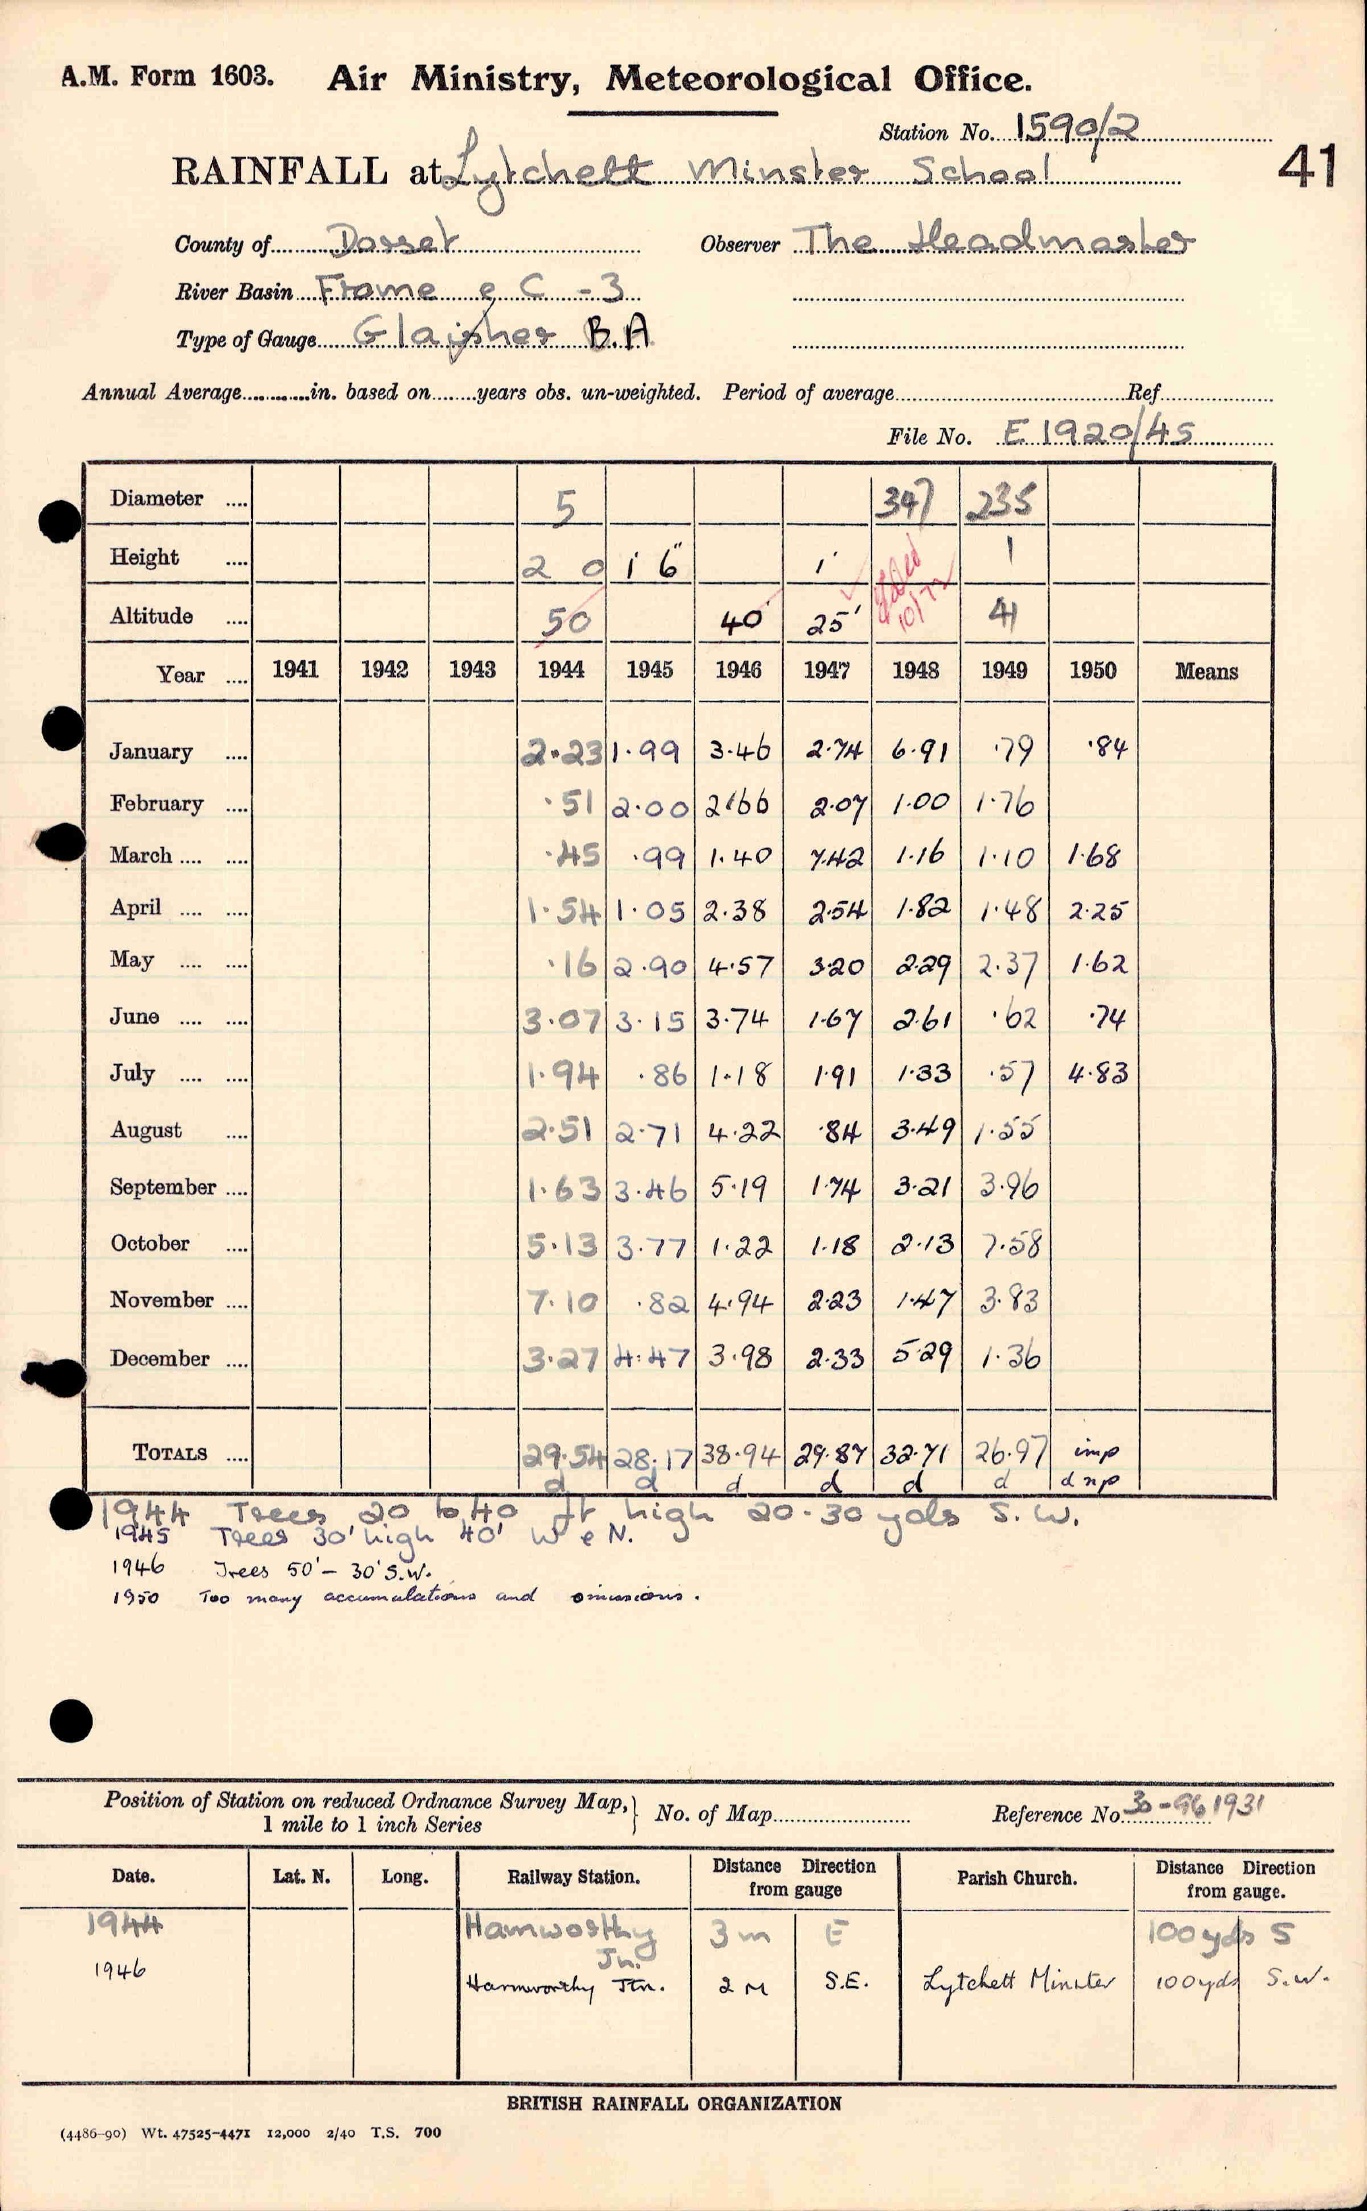 A.M. Form 1603. Air Ministry, Meteorological Office.
Station No. 1590/2
RAINFALL at Lytchett Minster School
41
County of Dorset Observer The Headmaster
River Basin Frome & C - 3
Type of Gauge Glaisher B.A
Annual Average in. based on years obs. un-weighted. Period of average Ref
File No. E 1920/45
Diameter 5 347 235
Height 2 0 1' 6" 1' 1
Altitude 50 40 25' 10/72 41
Year 1941 1942 1943 1944 1945 1946 1947 1948 1949 1950 Means
January 2.23 1.99 3.46 2.74 6.91 .79 .84
February .51 2.00 2.66 2.07 1.00 1.76
March .45 .99 1.40 7.42 1.16 1.10 1.68
April 1.54 1.05 2.38 2.54 1.82 1.48 2.25
May .16 2.90 4.57 3.20 2.29 2.37 1.62
June 3.07 3.15 3.74 1.67 2.61 .62 .74
July 1.94 .86 1.18 1.91 1.33 .57 4.83
August 2.51 2.71 4.22 .84 3.49 1.55
September 1.63 3.46 5.19 1.74 3.21 3.96
October 5.13 3.77 1.22 1.18 2.13 7.58
November 7.10 .82 4.94 2.23 1.47 3.83
December 3.27 4.47 3.98 2.33 5.29 1.36
TOTALS 29.54 28.17 38.94 29.87 32.71 26.97 imp
d d d d d d d np
1944 Trees 20 to 40 ft high 20-30 yds S.W.
1945 Trees 30' high 40' W & N.
1946 Trees 50' - 30' S.W.
1950 Too many accumulations and omissions.
Position of Station on reduced Ordnance Survey Map, 1 mile to 1 inch Series No. of Map Reference No 30-961931
Date. Lat. N. Long. Railway Station. Distance Direction from gauge Parish Church. Distance Direction from gauge.
1944 Hamworthy Jn. 3 m E 100 yds S
1946 Hamworthy Jtn. 2 M S.E. Lytchett Minster 100 yds S.W.
BRITISH RAINFALL ORGANIZATION
(4486-90) Wt. 47525-4471 12,000 2/40 T.S. 700